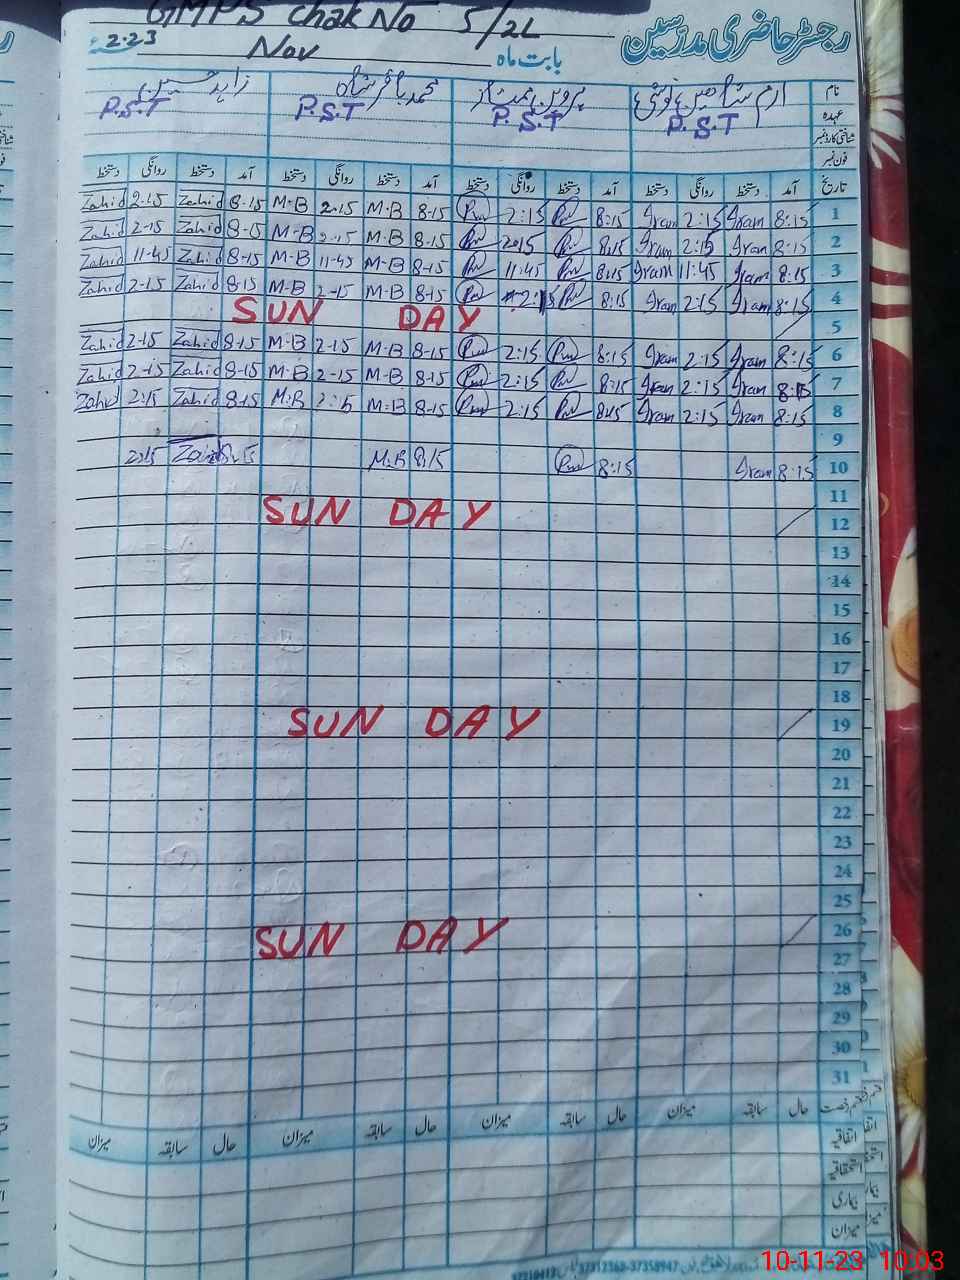 GMPS Chak No 5/2L
رجسٹر حاضری مدرسین
2.23 Nov بابت ماہ
نام ارم شاہین محمد باقر شاہ زاہد حسین
عہدہ P.S.T P.S.T P.S.T P.S.T
شناختی کارڈ نمبر
فون نمبر
تاریخ آمد دستخط روانگی دستخط آمد دستخط روانگی دستخط آمد دستخط روانگی دستخط آمد دستخط روانگی دستخط
Zahid 2-15 Zahid 8-15 M-B 2.15 M-B 8-15 2:15 8:15 Iram 2:15 Iram 8:15 1
Zahid 2-15 Zahid 8-15 M-B 2-15 M-B 8-15 2:15 8:15 Iram 2:15 Iram 8:15 2
Zahid 11-45 Zahid 8-15 M-B 11-45 M-B 8-15 11:45 8:15 Iram 11:45 Iram 8:15 3
Zahid 2-15 Zahid 8-15 M-B 2-15 M-B 8-15 2:15 8:15 Iram 2:15 Iram 8:15 4
SUN DAY 5
Zahid 2-15 Zahid 8-15 M-B 2-15 M-B 8-15 2:15 8:15 Iram 2:15 Iram 8:15 6
Zahid 2-15 Zahid 8-15 M-B 2-15 M-B 8-15 2:15 8:15 Iram 2:15 Iram 8:15 7
Zahid 2:15 Zahid 8-15 M-B 2:15 M-B 8-15 2:15 8:15 Iram 2:15 Iram 8:15 8
9
2:15 Zahid 8:15 M-B 8:15 8:15 Iram 8:15 10
11
SUN DAY 12
13
14
15
16
17
18
SUN DAY 19
20
21
22
23
24
25
SUN DAY 26
27
28
29
30
31
حال سابقہ میزان حال سابقہ میزان حال سابقہ میزان حال سابقہ میزان
اتفاقیہ
استحقاقیہ
بیماری
میزان
10-11-23 10:03